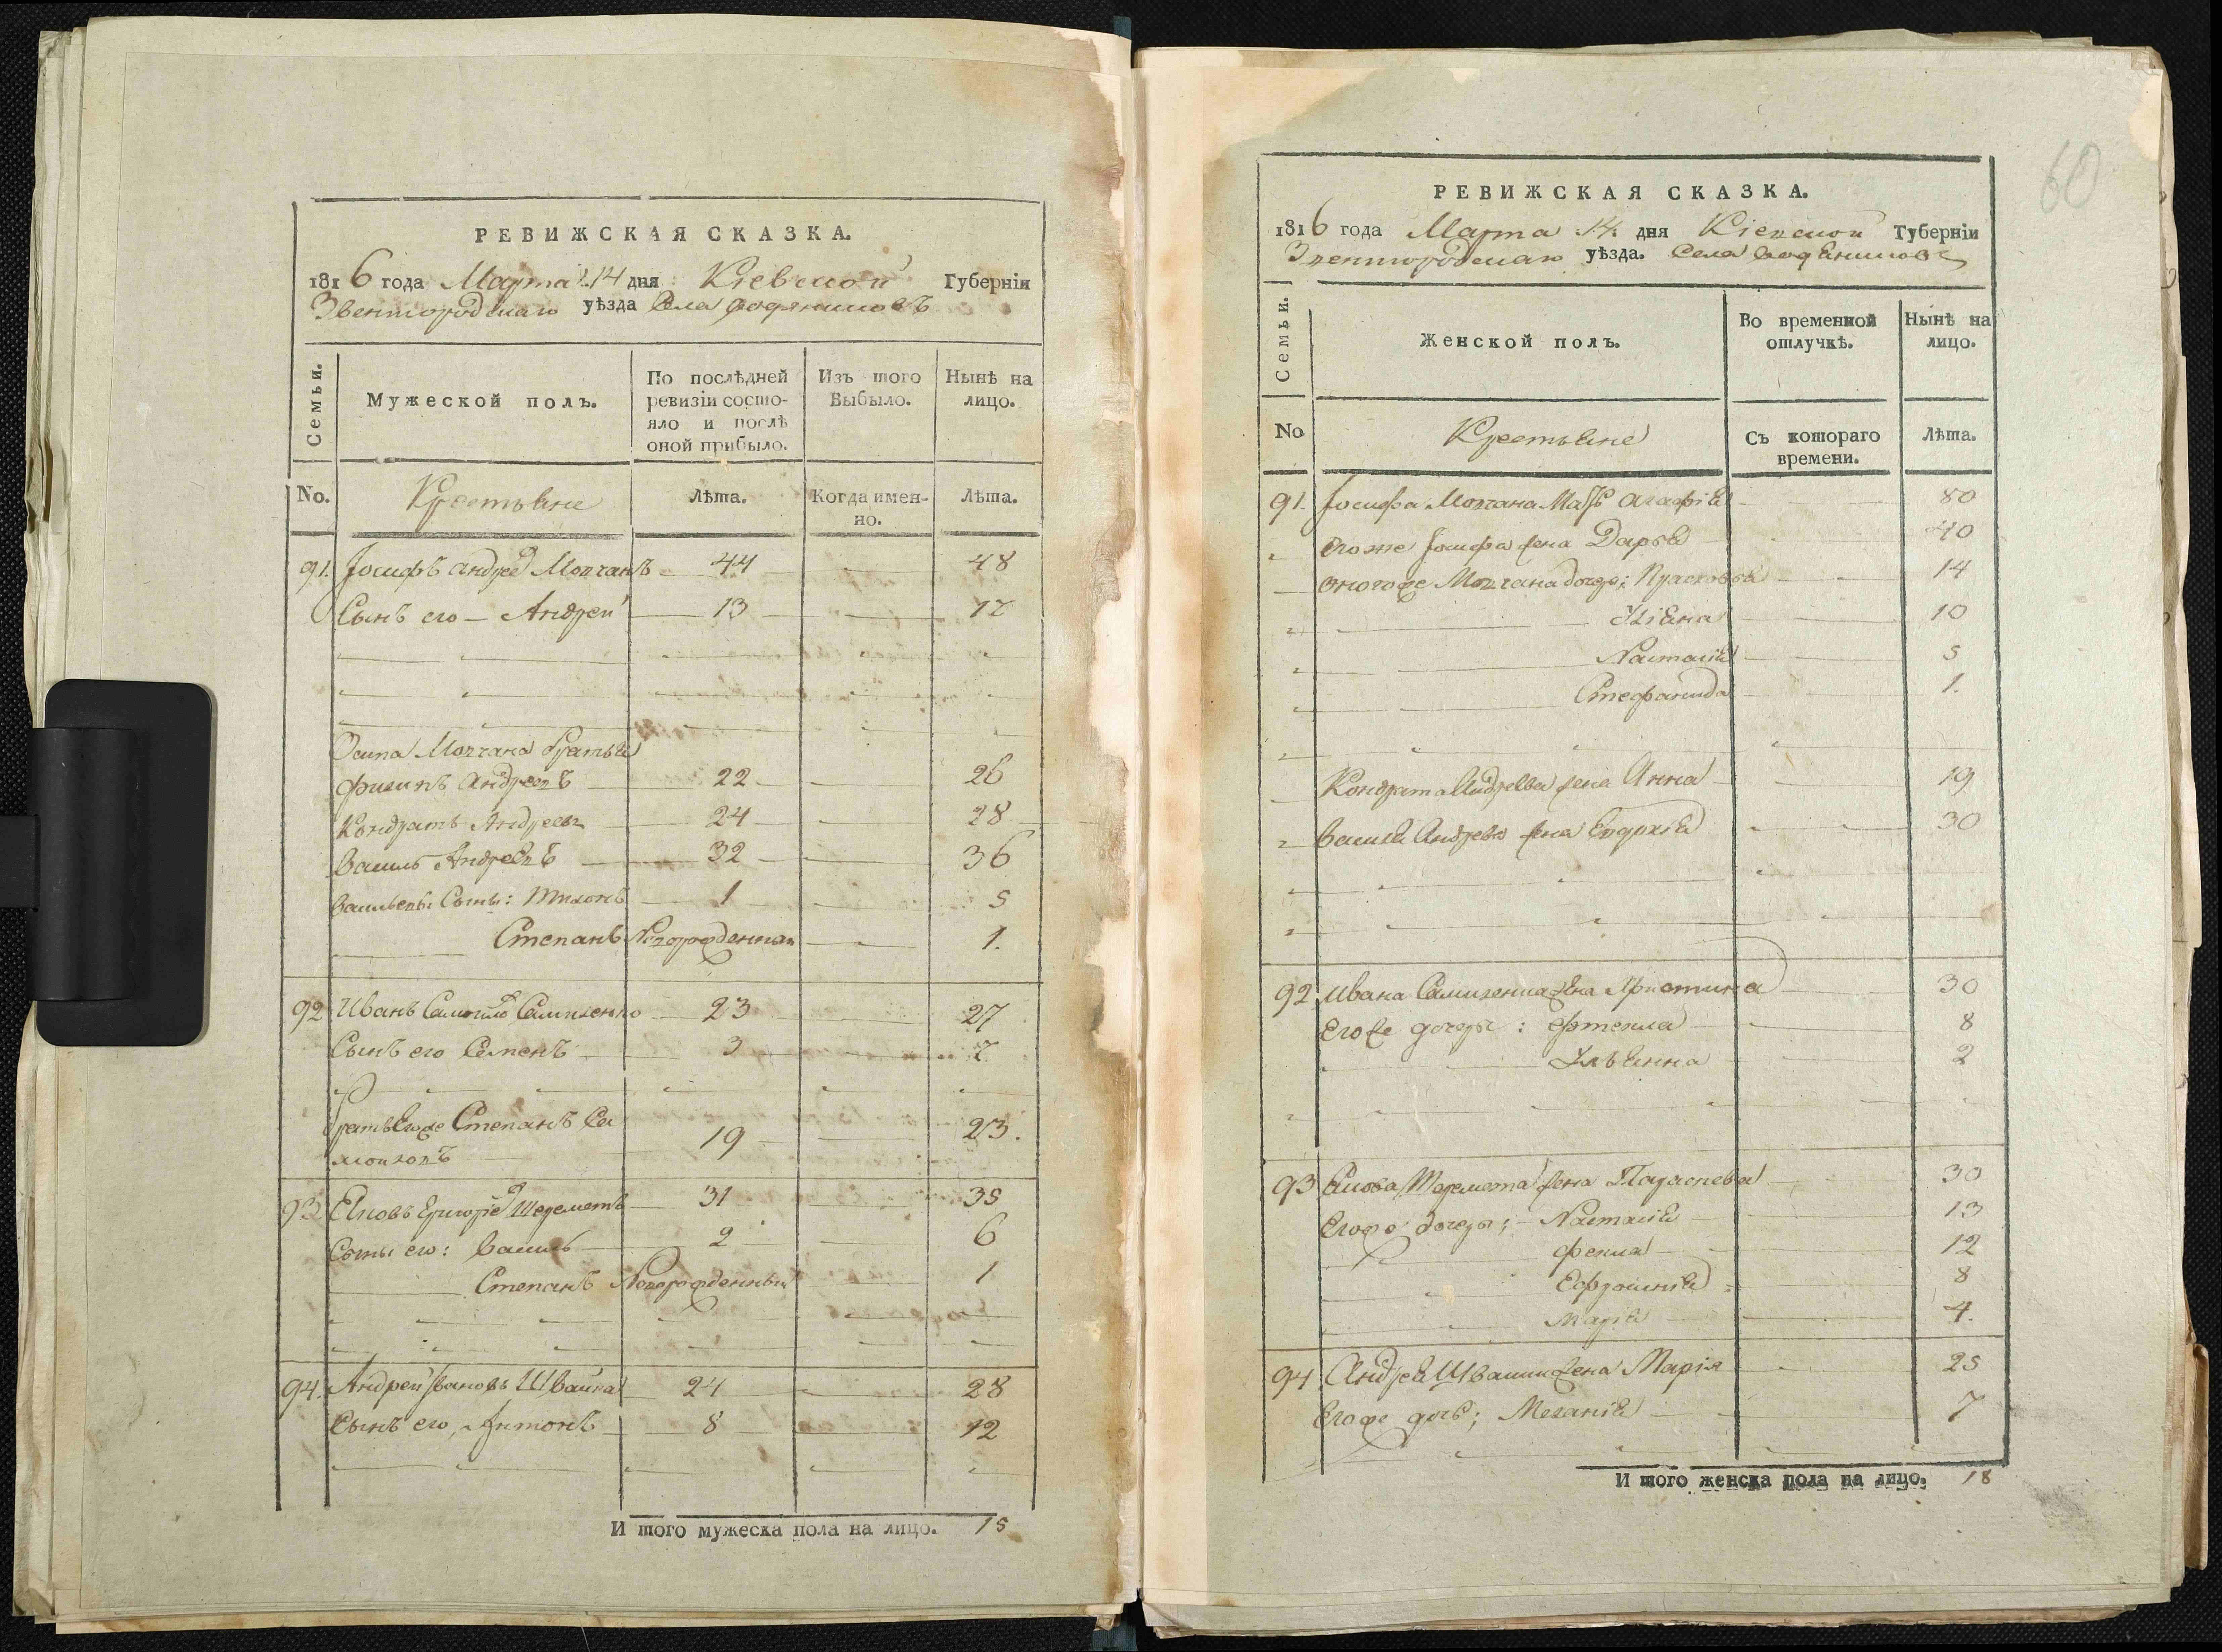 РЕВИЖСКАЯ СКАЗКА.
1816 года Марта 14 дня Кіевской Губерніи
Звенигородскаго уѣзда Села
Семьи.
Мужеской полъ.
По послѣдней ревизіи состояло и послѣ оной прибыло.
Изъ того Выбыло.
Нынѣ на лицо.
No. Крестьяне Лѣта. Когда именно. Лѣта.
91. Іосифъ Андреев Молчанъ 44 48
Сынъ его Андрей 13 17
Осипа Молчана братья
Филипъ Андреевъ 22 26
Кондратъ Андреевъ 24 28
Василь Андреевъ 32 36
Васильевы Сыны: Тихонъ 1 5
Степанъ Новорожденный 1.
92 Иванъ 23 27
Сынъ его Семенъ 3 7
братъ Егоже Степанъ Са
мойловъ 19 23.
93 Яковъ Григорьев Шереметъ 31 35
Сыны его: Василь 2 6
Степанъ Новорожденный 1
94. Андрей Ивановъ Швайка 24 28
Сынъ его, Антонъ 8 12
И того мужеска пола на лицо. 15
60
РЕВИЖСКАЯ СКАЗКА.
1816 года Марта 14. дня Кіевской Губерніи
Звенигородскаго уѣзда. Села
Семьи.
Женской полъ.
Во временной отлучкѣ.
Нынѣ на лицо.
No Крестьяне Съ котораго времени. Лѣта.
91. Іосифа Молчана Мать Агафія 80
Егоже Іосифа жена Дарья 40
Оногоже Молчана дочери: 14
Уліяна 10
Настасія 5
Стефанида 1.
Кондрата Андреева жена Анна 19
Василя Андреева жена Евдокія 30
92 Ивана жена Христина 30
Егоже дочеры: Фтекла 8
Ульянна 2
93 Якова Шеремета жена Параскева 30
Егоже дочеры: Настасія 13
Фекла 12
Ефросинія 8
Марія 4.
94 Андрея Швайки жена Марія 25
Егоже дочь; Меланія 7
И того женска пола на лицо. 18